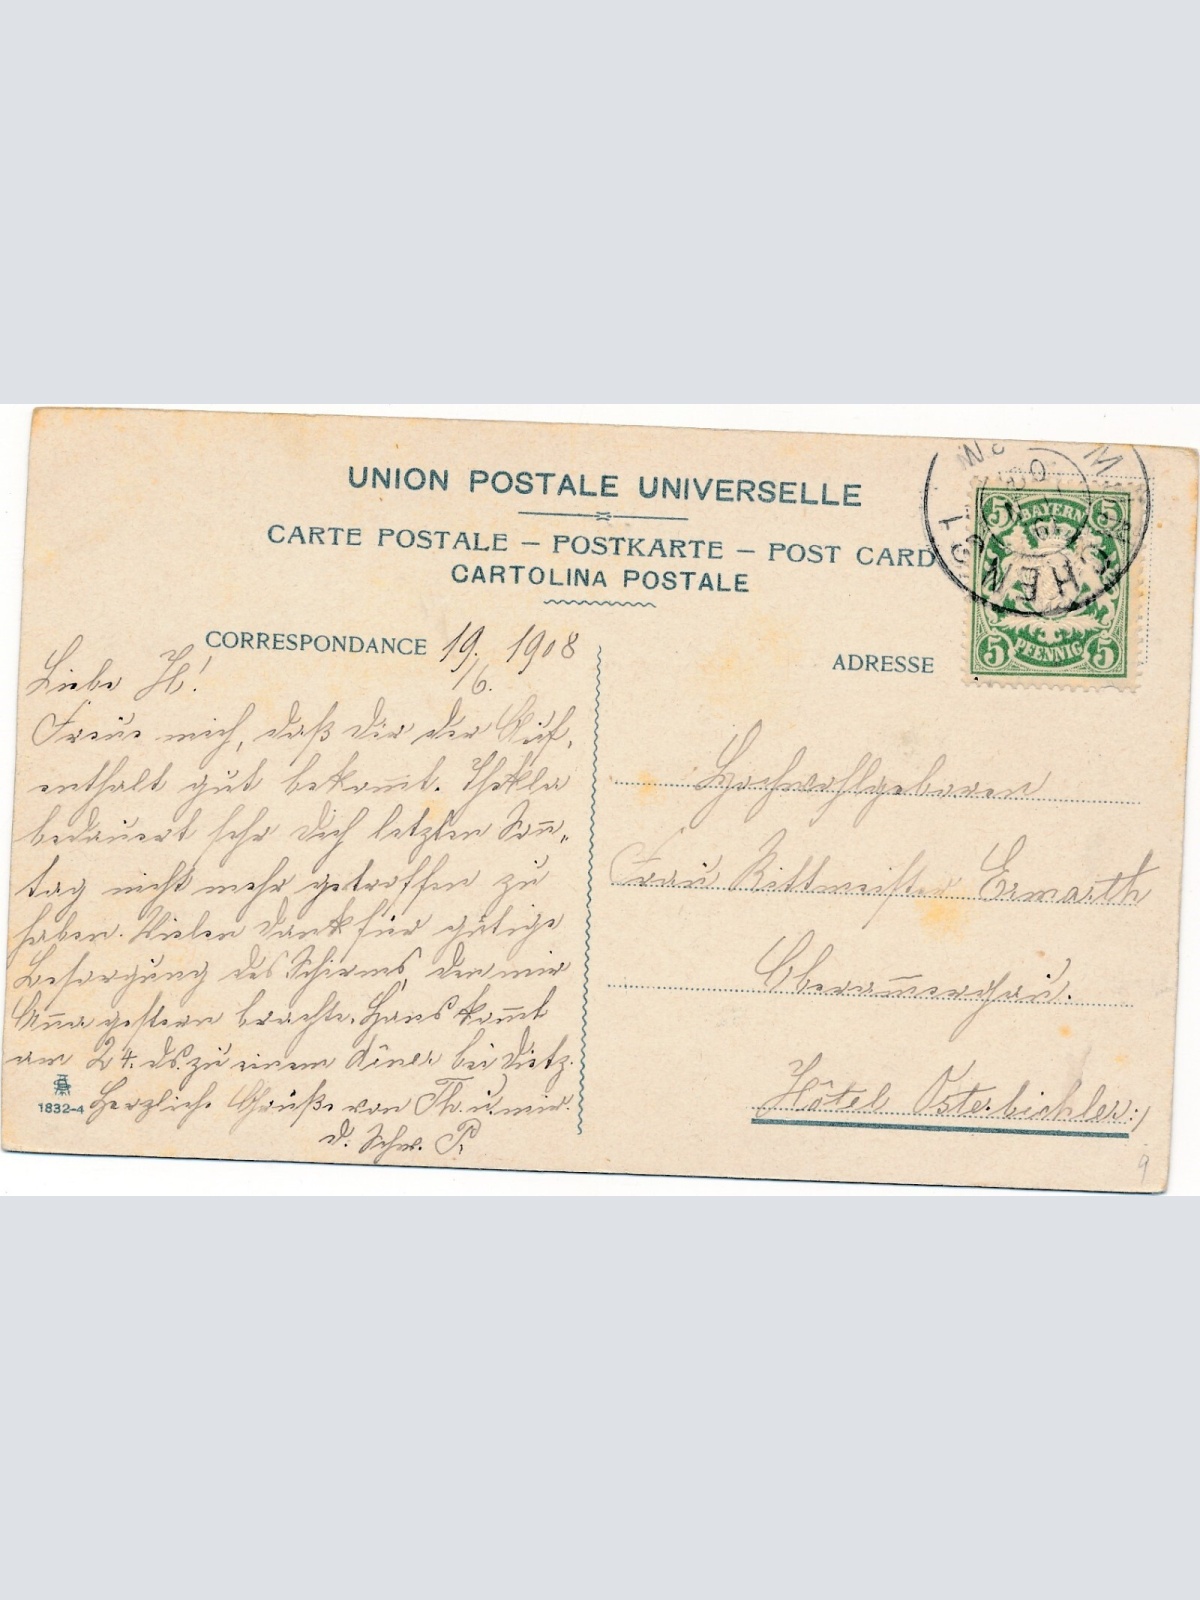 UNION POSTALE UNIVERSELLE
CARTE POSTALE – POSTKARTE – POST CARD
CARTOLINA POSTALE
CORRESPONDANCE 19./6. 1908
Liebe H!
Freue mich, daß Dir der Auf-
enthalt gut bekom̅t. Thekla
bedauert sehr Dich letzten Son̅-
tag nicht mehr getroffen zu
haben. Vielen Dank für gütige
Besorgung des Schirms, den mir
An̅a gestern brachte. Hans kom̅t
am 24. ds. zu einem Diner bei Dietz.
Herzliche Grüße von Th. u. mir.
D. Schw. P.
1832-4
ADRESSE
BAYERN
5 5
5 PFENNIG 5
Hochwohlgeboren
Frau Rittmeister Ermarth
Oberam̅ergau.
Hôtel Osterbichler:/
9